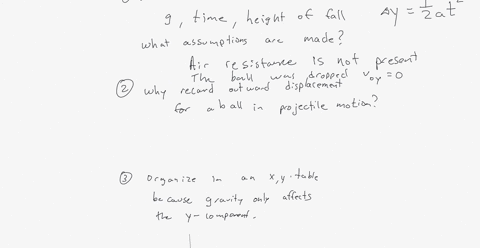 g, time, height of fall
Δy = 1/2 at²
what assumptions are made?
Air resistance is not present
The ball was dropped v₀y = 0
② why record outward displacement
for a ball in projectile motion?
③ organize in an x,y-table
because gravity only affects
the y-component.